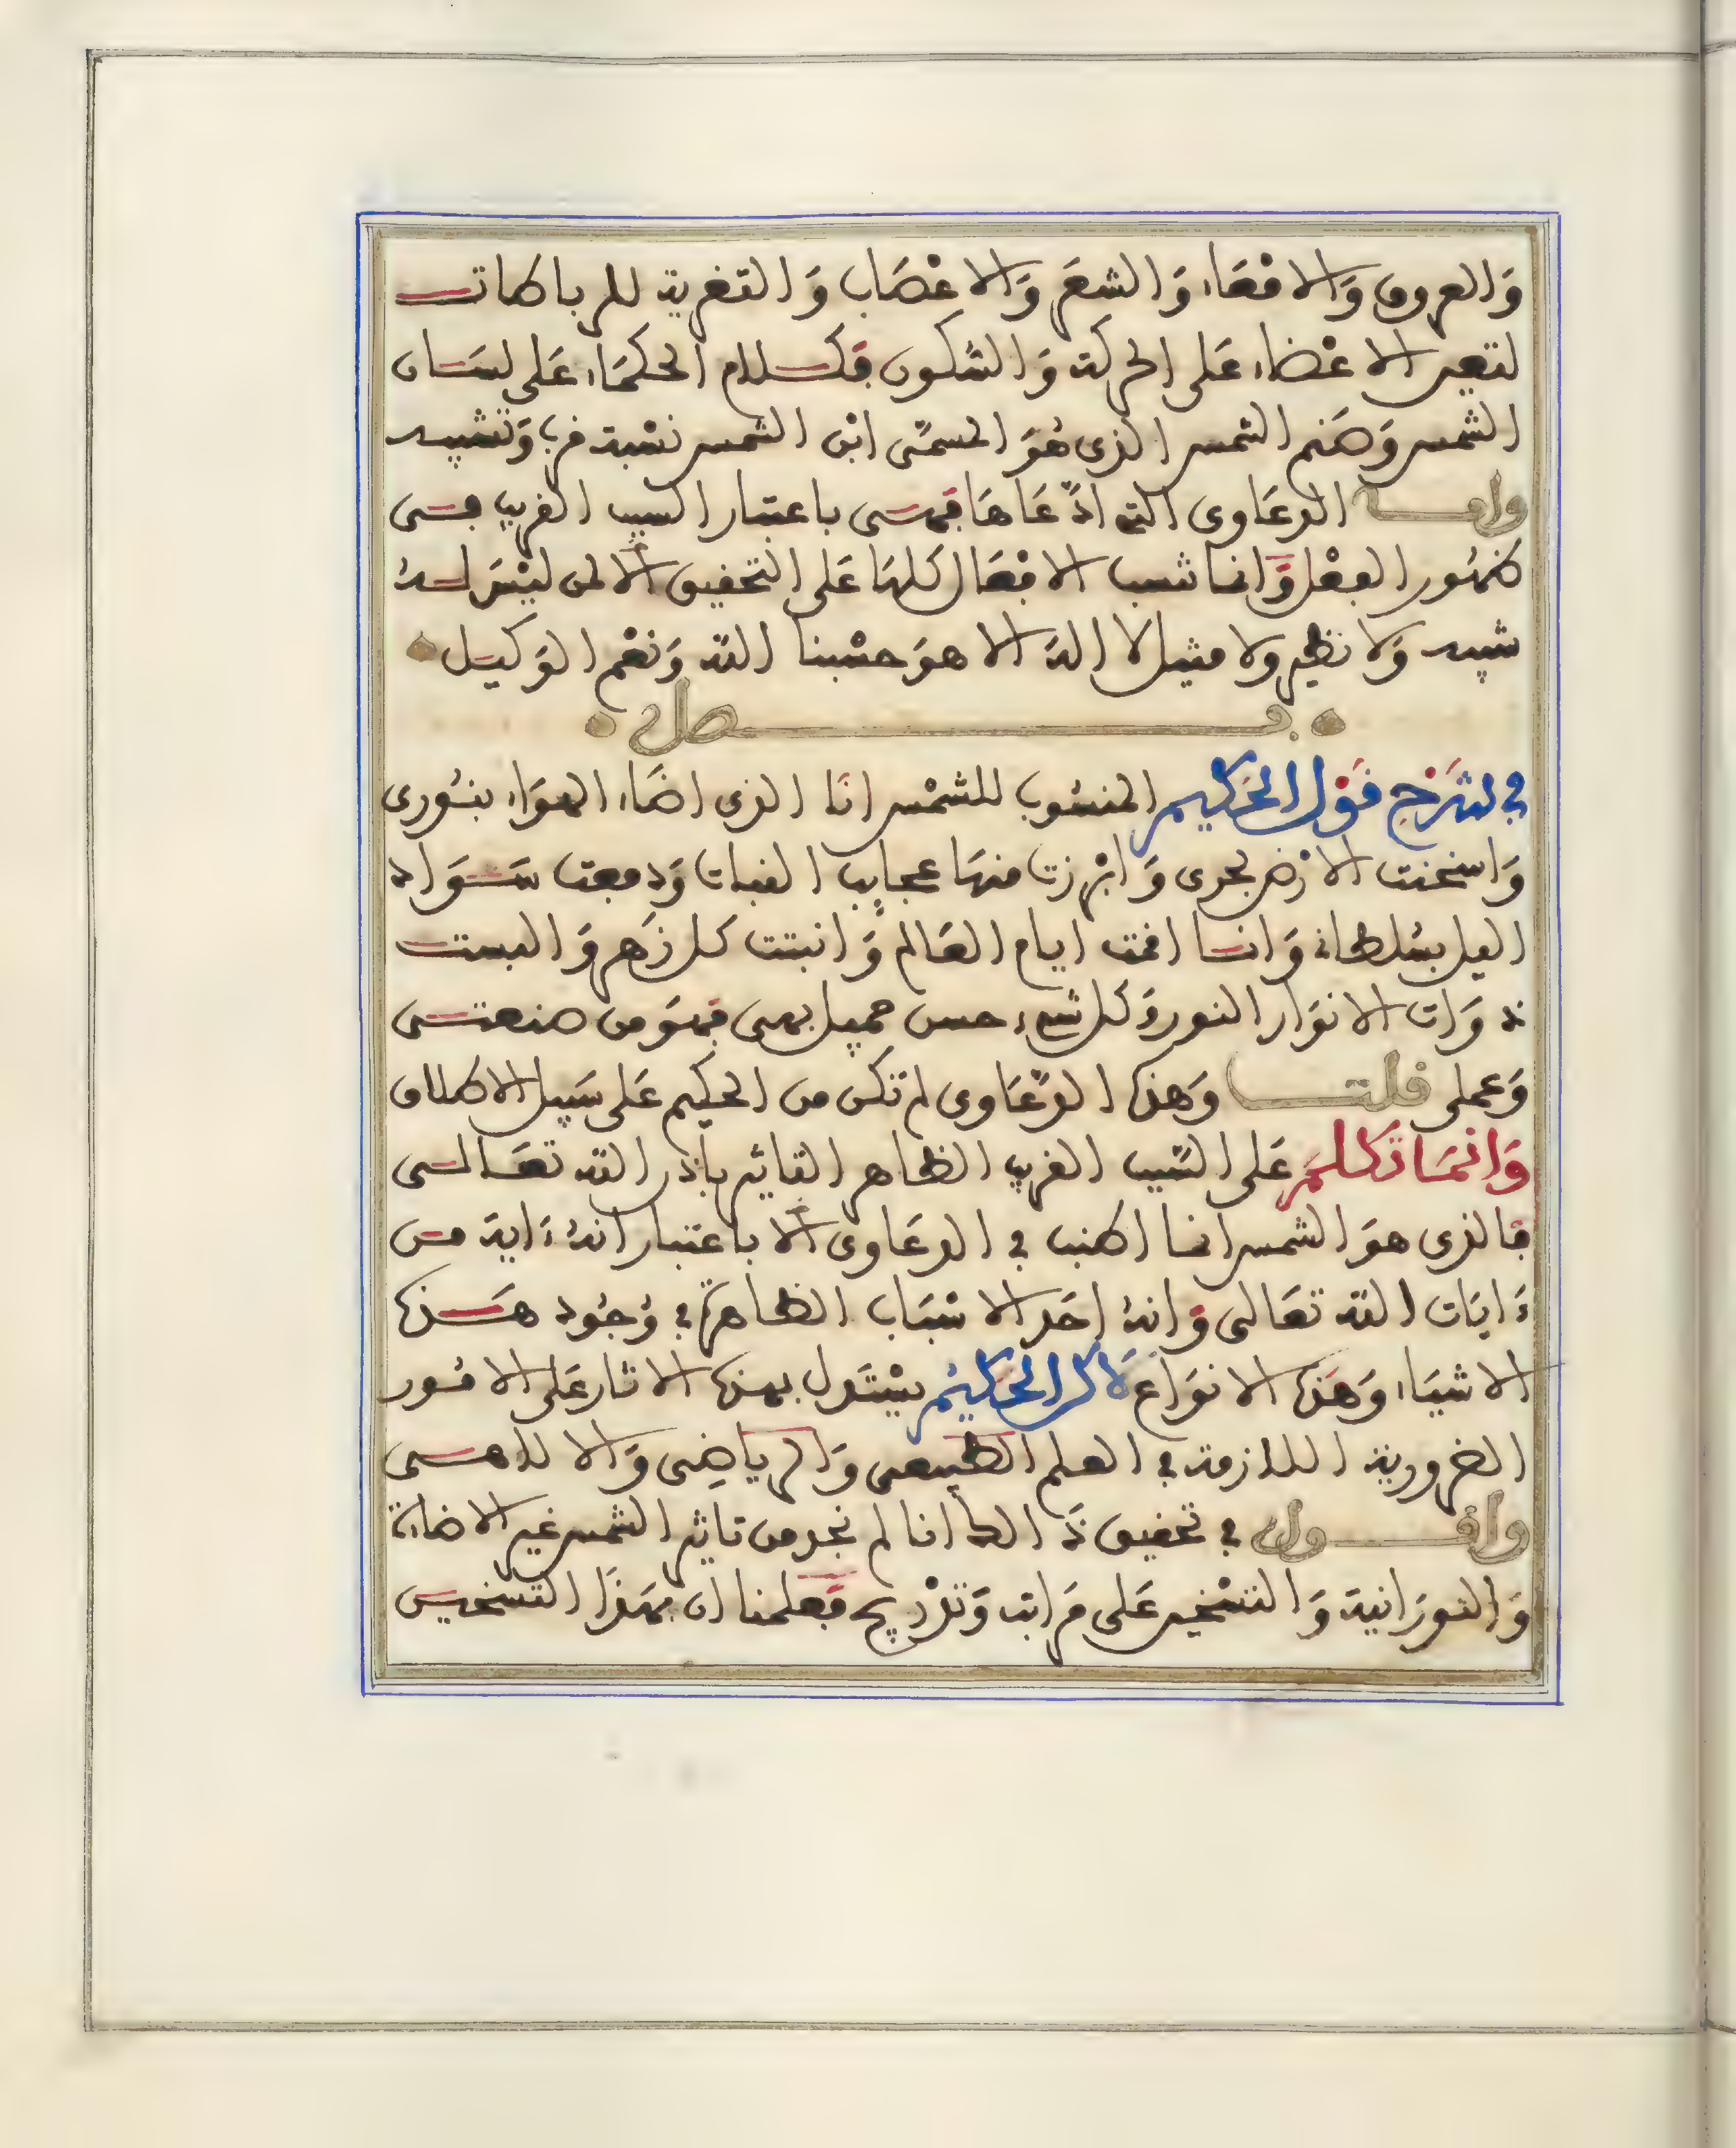 وَالعروق وَالامْعَاء وَالشعَر وَالاعْصَاب وَالتغرية للرباطات
لتعين الاعْضاء عَلى الحركة وَالسُّكون فكلام الحكمَاء عَلى لسَان
الشمس وَصَنم الشمس الذى هُوَ المسمَّى ابْن الشمس نسْبة قرب وَتشبيه
واما الدعَاوى التى ادَّعَاهَا فهى باعتبار السبب القريب فى
ظهُور الفعْل وَانما تنسب الافْعَال كلهَا عَلى التحقيق الا لمن ليْسَ لهُ
شبيه وَلا نظير ولا مثيل لا اله الا هوَ حسْبنا الله وَنعْم الوَكيل
فصل
فى شَرْح قَوْل الحَكيم المنسُوب للشمْس انَا الذى اضَاء الهوَاء بنُورى
وَاسخنت الارْض بحرى وَابْرزت منهَا عجايب النبات وَدفعت سَوَاد
اليل بسُلطانى وَانا اقمت ايام العَالم وَانبتت كل زَهر وَالبست
ذوَات الانوَار النور وَكل شىء حسن جميل بهى فهوَ من صنعتى
وَعملى قلت وَهذه الدعَاوى لم تكن من الحكيم عَلى سَبيل الاطلاق
وَانمَا تَكلمَ عَلى السَّبب القريب الظاهر القايم باذن الله تعَالى
فالذى هوَ الشمس انما اطنب فى الدعَاوى الا باعتبار انهُ ءاية من
ءَايَات الله تعَالى وَانهُ احَد الاسْبَاب الظاهرة فى وُجُود هَذه
الاشيَاء وَهَذه الانوَاع لَاكن الحَكيْم يسْتَدل بهذه الاثار عَلى الامُور
الضرورية اللازمة فى العلم الطبيعى وَالرياضِى وَالالاهى
واقول فى تحقيق ذَالك انا لم نجد من تاثير الشمس غير الاضاءة
وَالنورَانية وَالتسْخين عَلى مَراتب وَتدْريج فعلمنا ان بهَذَا التسخين